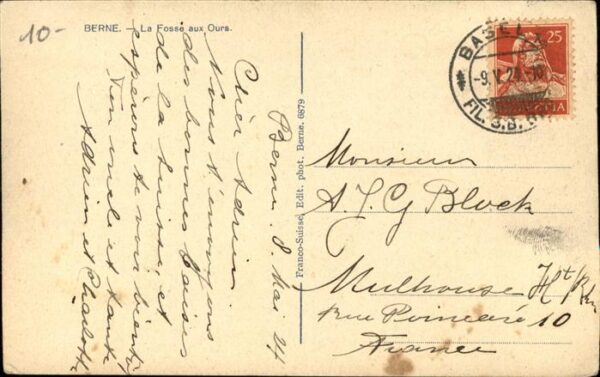 10-
BERNE. — La Fosse aux Ours.
Berne. 8 Mai 24
Cher Adrien
Nous t'envoyons
des bonnes baises
de la Suisse, et
espérons te voir bientôt
Ton oncle et tante
Adrien et Charlotte
Franco-Suisse, Edit. phot. Berne. 6879
BASEL
-9.V.24.
FIL. S.B.B.
25
HELVETIA
Monsieur
A. J. G Block
Mulhouse Ht/Rhin
rue Poincaré 10
France